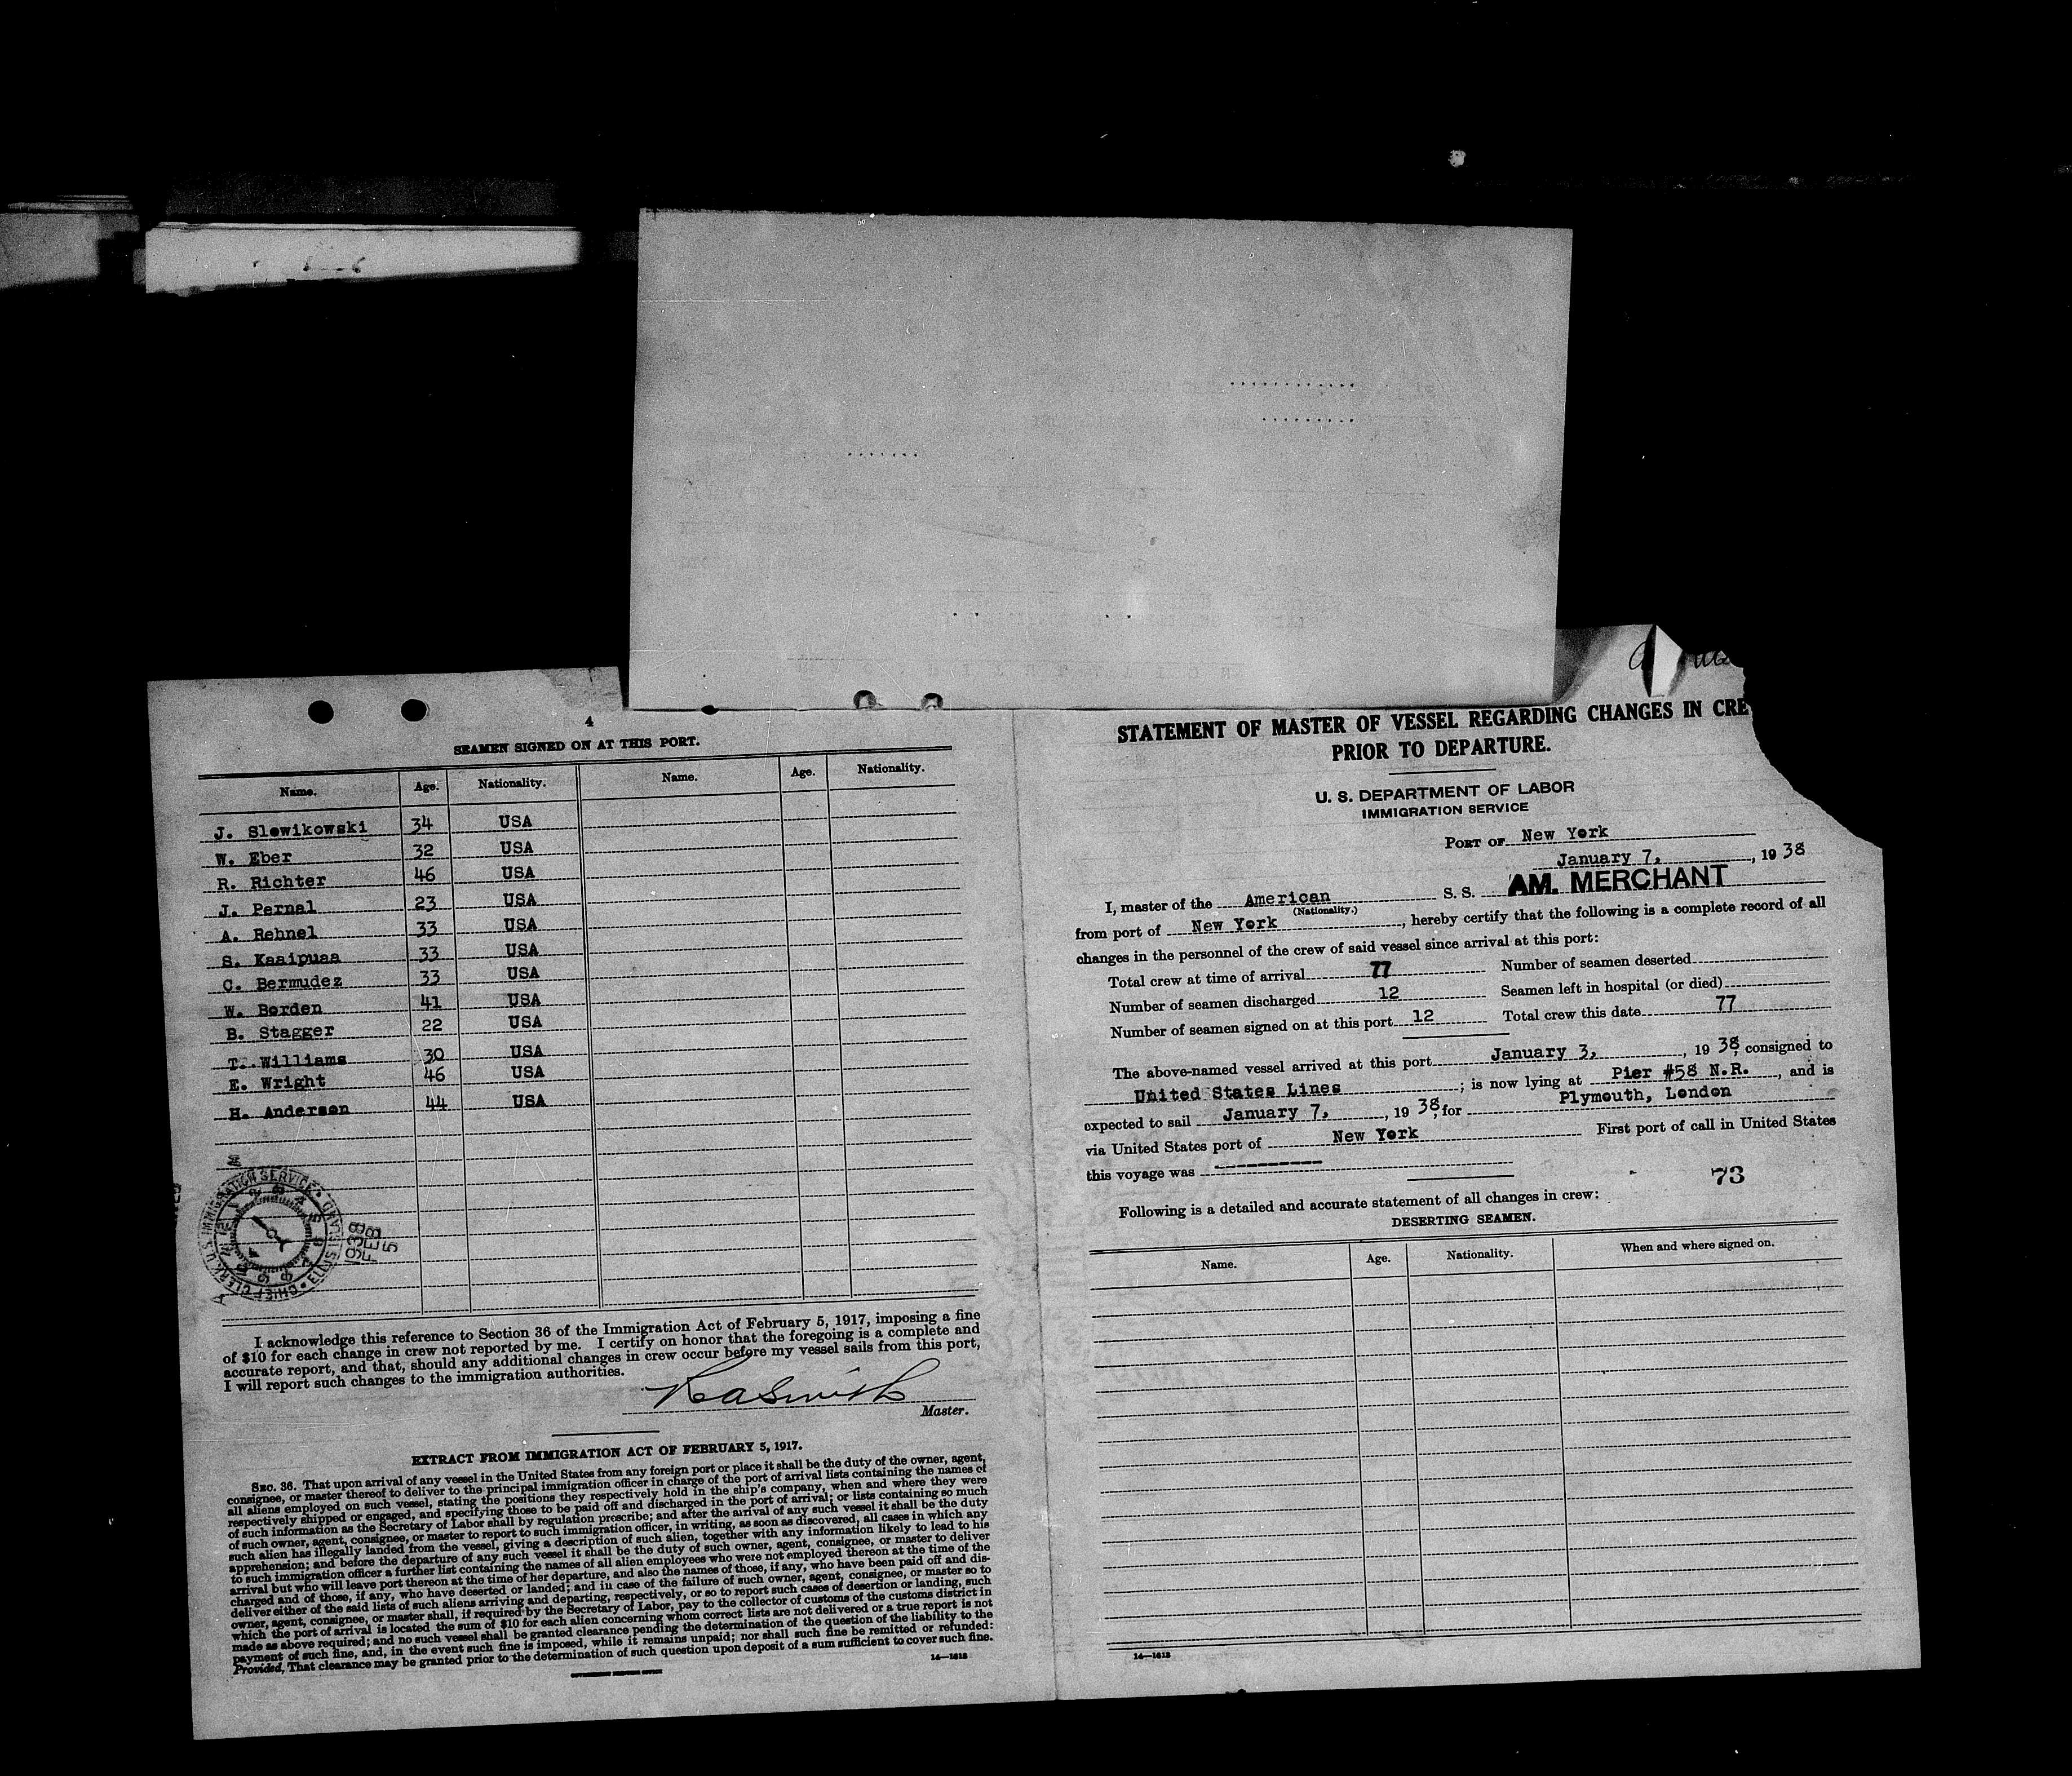 4
SEAMEN SIGNED ON AT THIS PORT.
Name. Age. Nationality. Name. Age. Nationality.
J. Slowikowski 34 USA
W. Eber 32 USA
R. Richter 46 USA
J. Pernal 23 USA
A. Rehnel 33 USA
S. Kaaipuaa 33 USA
C. Bermudez 33 USA
W. Borden 41 USA
B. Stagger 22 USA
T. Williams 30 USA
E. Wright 46 USA
H. Anderson 44 USA
CHIEF CLERK, U.S. IMMIGRATION SERVICE • ELLIS ISLAND
1938
FEB
5
I acknowledge this reference to Section 36 of the Immigration Act of February 5, 1917, imposing a fine
of $10 for each change in crew not reported by me. I certify on honor that the foregoing is a complete and
accurate report, and that, should any additional changes in crew occur before my vessel sails from this port,
I will report such changes to the immigration authorities.
Master.
EXTRACT FROM IMMIGRATION ACT OF FEBRUARY 5, 1917.
SEC. 36. That upon arrival of any vessel in the United States from any foreign port or place it shall be the duty of the owner, agent,
consignee, or master thereof to deliver to the principal immigration officer in charge of the port of arrival lists containing the names of
all aliens employed on such vessel, stating the positions they respectively hold in the ship's company, when and where they were
respectively shipped or engaged, and specifying those to be paid off and discharged in the port of arrival; or lists containing so much
of such information as the Secretary of Labor shall by regulation prescribe; and after the arrival of any such vessel it shall be the duty
of such owner, agent, consignee, or master to report to such immigration officer, in writing, as soon as discovered, all cases in which any
such alien has illegally landed from the vessel, giving a description of such alien, together with any information likely to lead to his
apprehension; and before the departure of any such vessel it shall be the duty of such owner, agent, consignee, or master to deliver
to such immigration officer a further list containing the names of all alien employees who were not employed thereon at the time of the
arrival but who will leave port thereon at the time of her departure, and also the names of those, if any, who have been paid off and dis-
charged and of those, if any, who have deserted or landed; and in case of the failure of such owner, agent, consignee, or master so to
deliver either of the said lists of such aliens arriving and departing, respectively, or so to report such cases of desertion or landing, such
owner, agent, consignee, or master shall, if required by the Secretary of Labor, pay to the collector of customs of the customs district in
which the port of arrival is located the sum of $10 for each alien concerning whom correct lists are not delivered or a true report is not
made as above required; and no such vessel shall be granted clearance pending the determination of the question of the liability to the
payment of such fine, and, in the event such fine is imposed, while it remains unpaid; nor shall such fine be remitted or refunded:
Provided, That clearance may be granted prior to the determination of such question upon deposit of a sum sufficient to cover such fine.
14—1618
STATEMENT OF MASTER OF VESSEL REGARDING CHANGES IN CRE
PRIOR TO DEPARTURE.
U. S. DEPARTMENT OF LABOR
IMMIGRATION SERVICE
PORT OF New York
January 7, , 19 38
I, master of the American S. S. AM. MERCHANT
(Nationality.)
from port of New York , hereby certify that the following is a complete record of all
changes in the personnel of the crew of said vessel since arrival at this port:
Total crew at time of arrival 77 Number of seamen deserted
Number of seamen discharged 12 Seamen left in hospital (or died)
Number of seamen signed on at this port 12 Total crew this date 77
The above-named vessel arrived at this port January 3, , 19 38, consigned to
United States Lines ; is now lying at Pier #58 N.R. , and is
expected to sail January 7, , 19 38, for Plymouth, London
via United States port of New York First port of call in United States
this voyage was ----------
73
Following is a detailed and accurate statement of all changes in crew:
DESERTING SEAMEN.
Name. Age. Nationality. When and where signed on.
14—1618